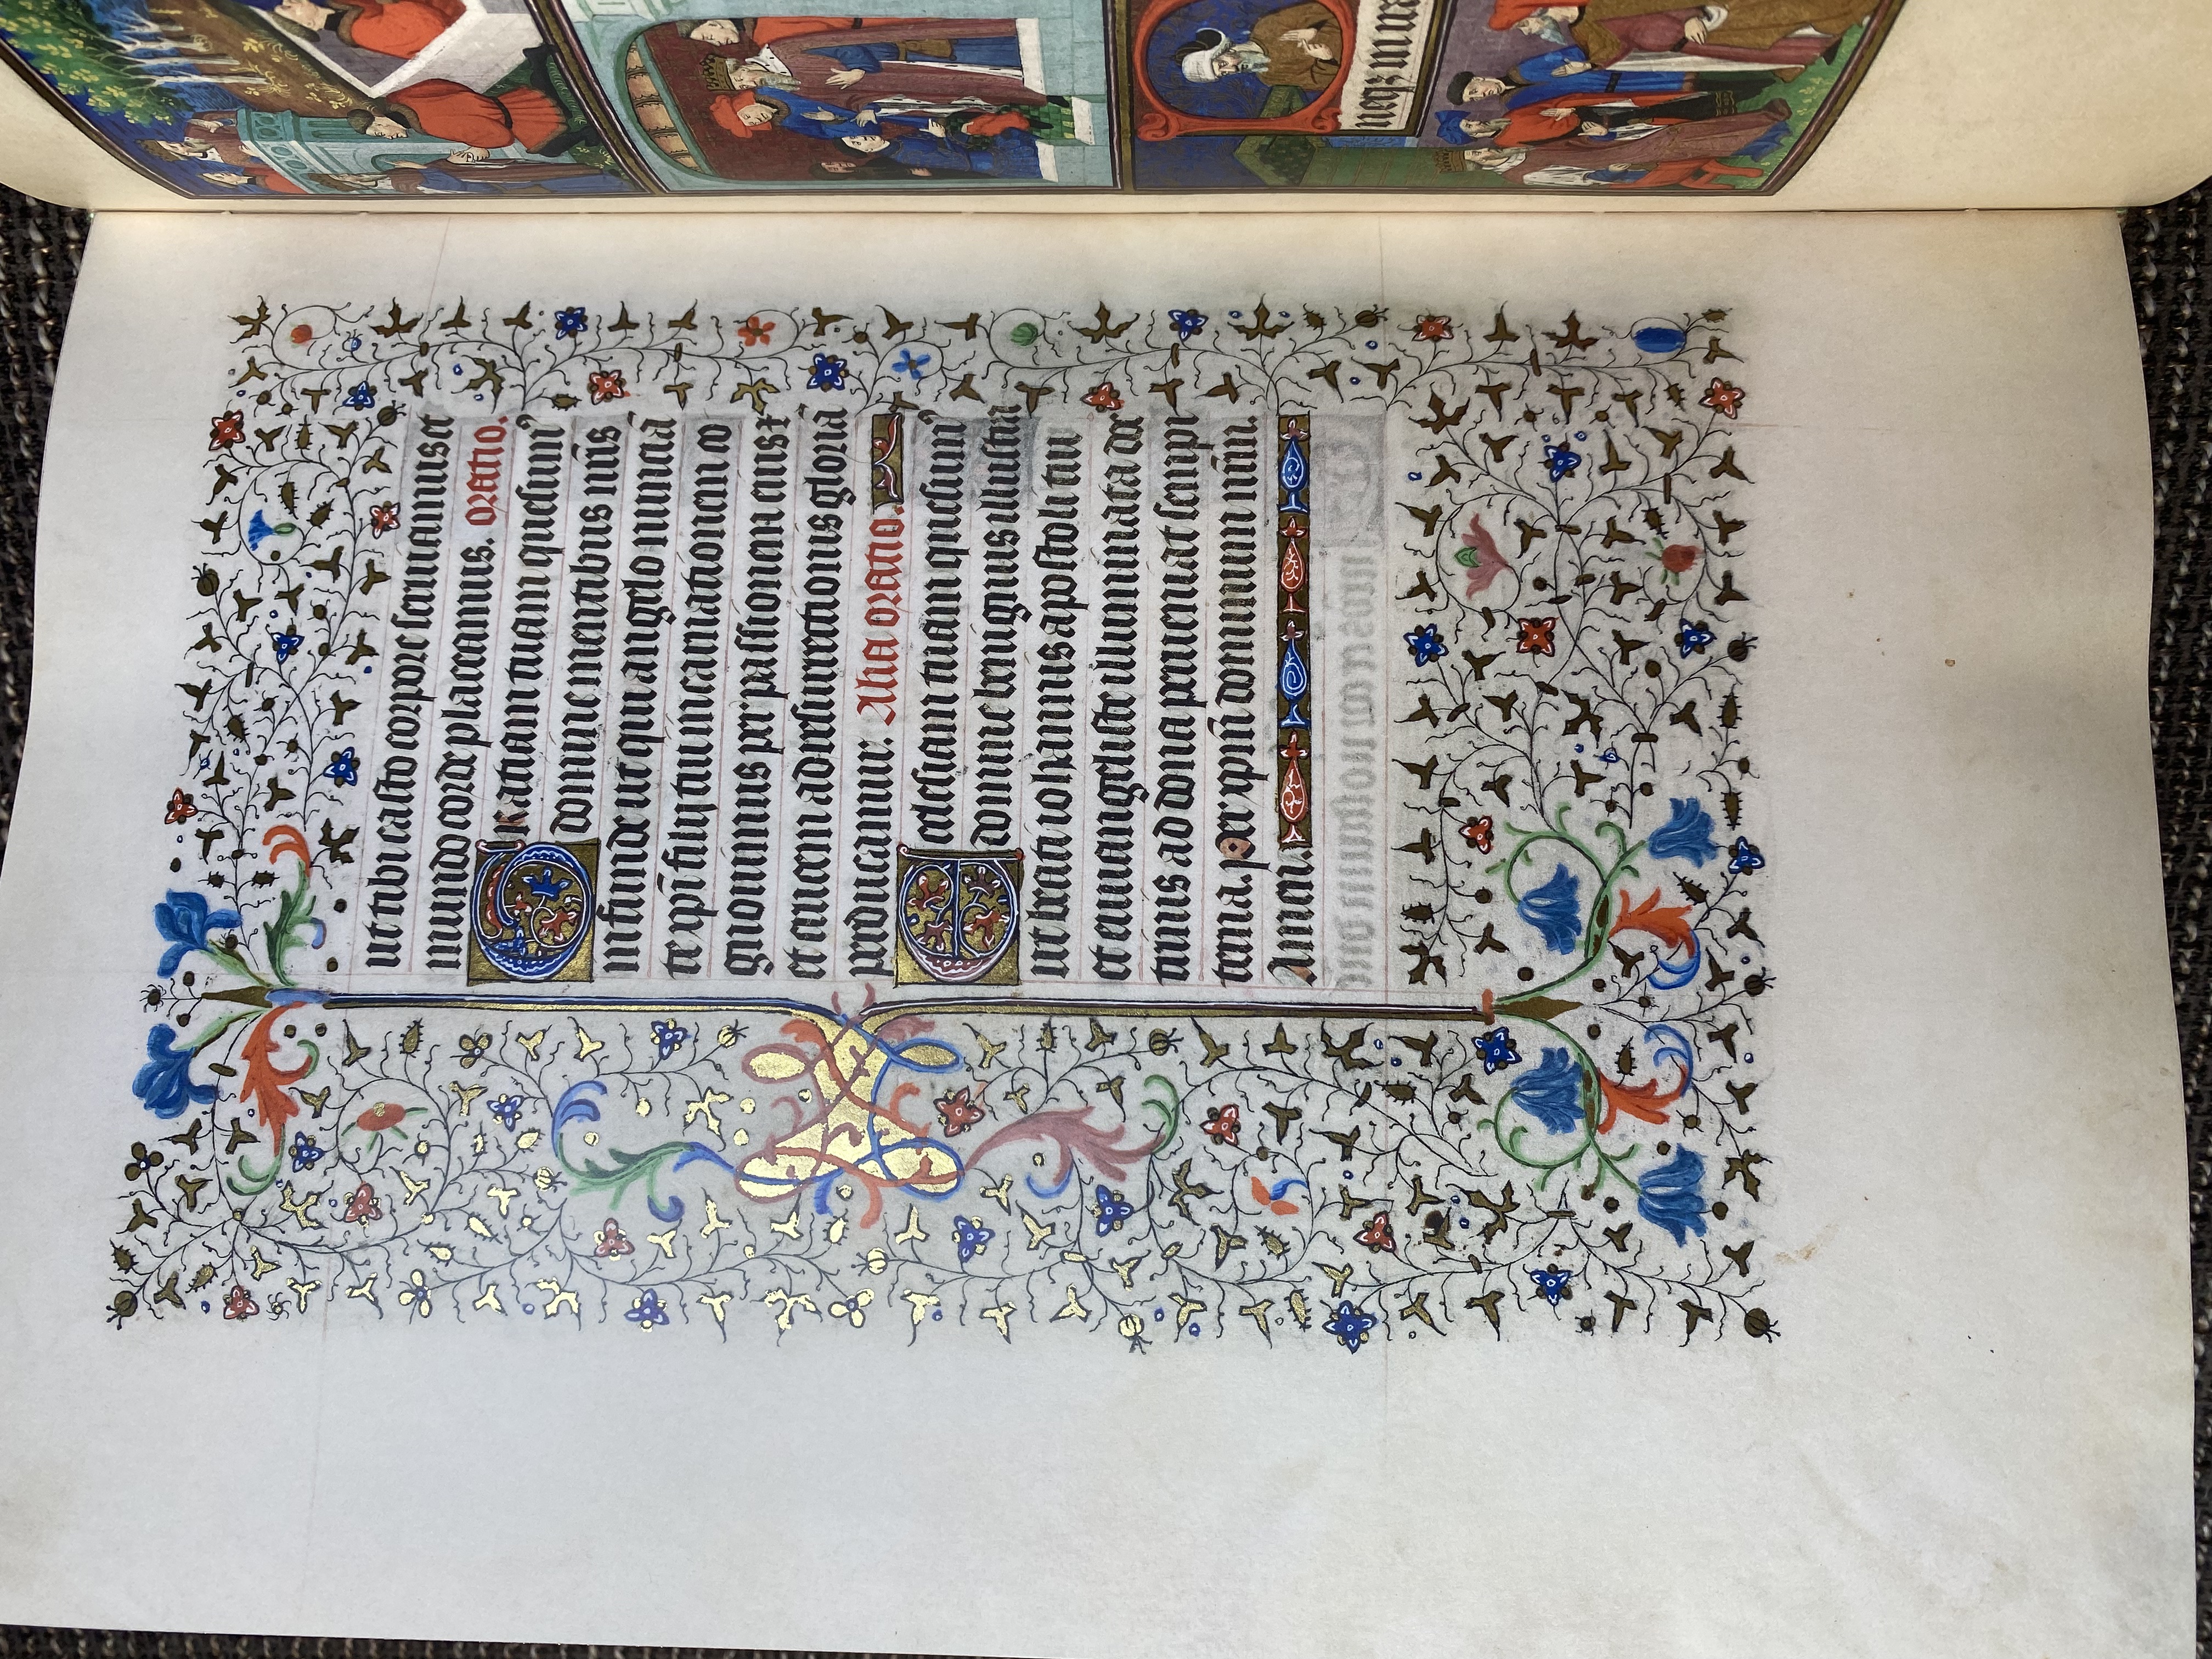 ut tibi casto corpore serviamus et
mundo corde placeamus. oratio.
Gratiam tuam quesum̄
domine mentibus nr̄is
infunde ut qui angelo nuncia
te xp̄i filij tui incarnationem co
gnovimus per passionem eius +
et crucem ad resurrectionis gloriā
perducamur. Alia oratio.
Ecclesiam tuam quesum̄
domine benignus illustra
ut beati iohannis apostoli tui
et euuangeliste illuminata doc
trinis ad dona perveniat sempi
terna. per xp̄m dominum nr̄m.
Amen.